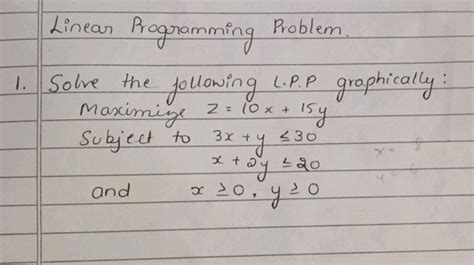 Linear Programming Problem.
1. Solve the following L.P.P graphically:
Maximize Z = 10x + 15y
Subject to 3x + y ≤ 30
x + 2y ≤ 20
and x ≥ 0, y ≥ 0